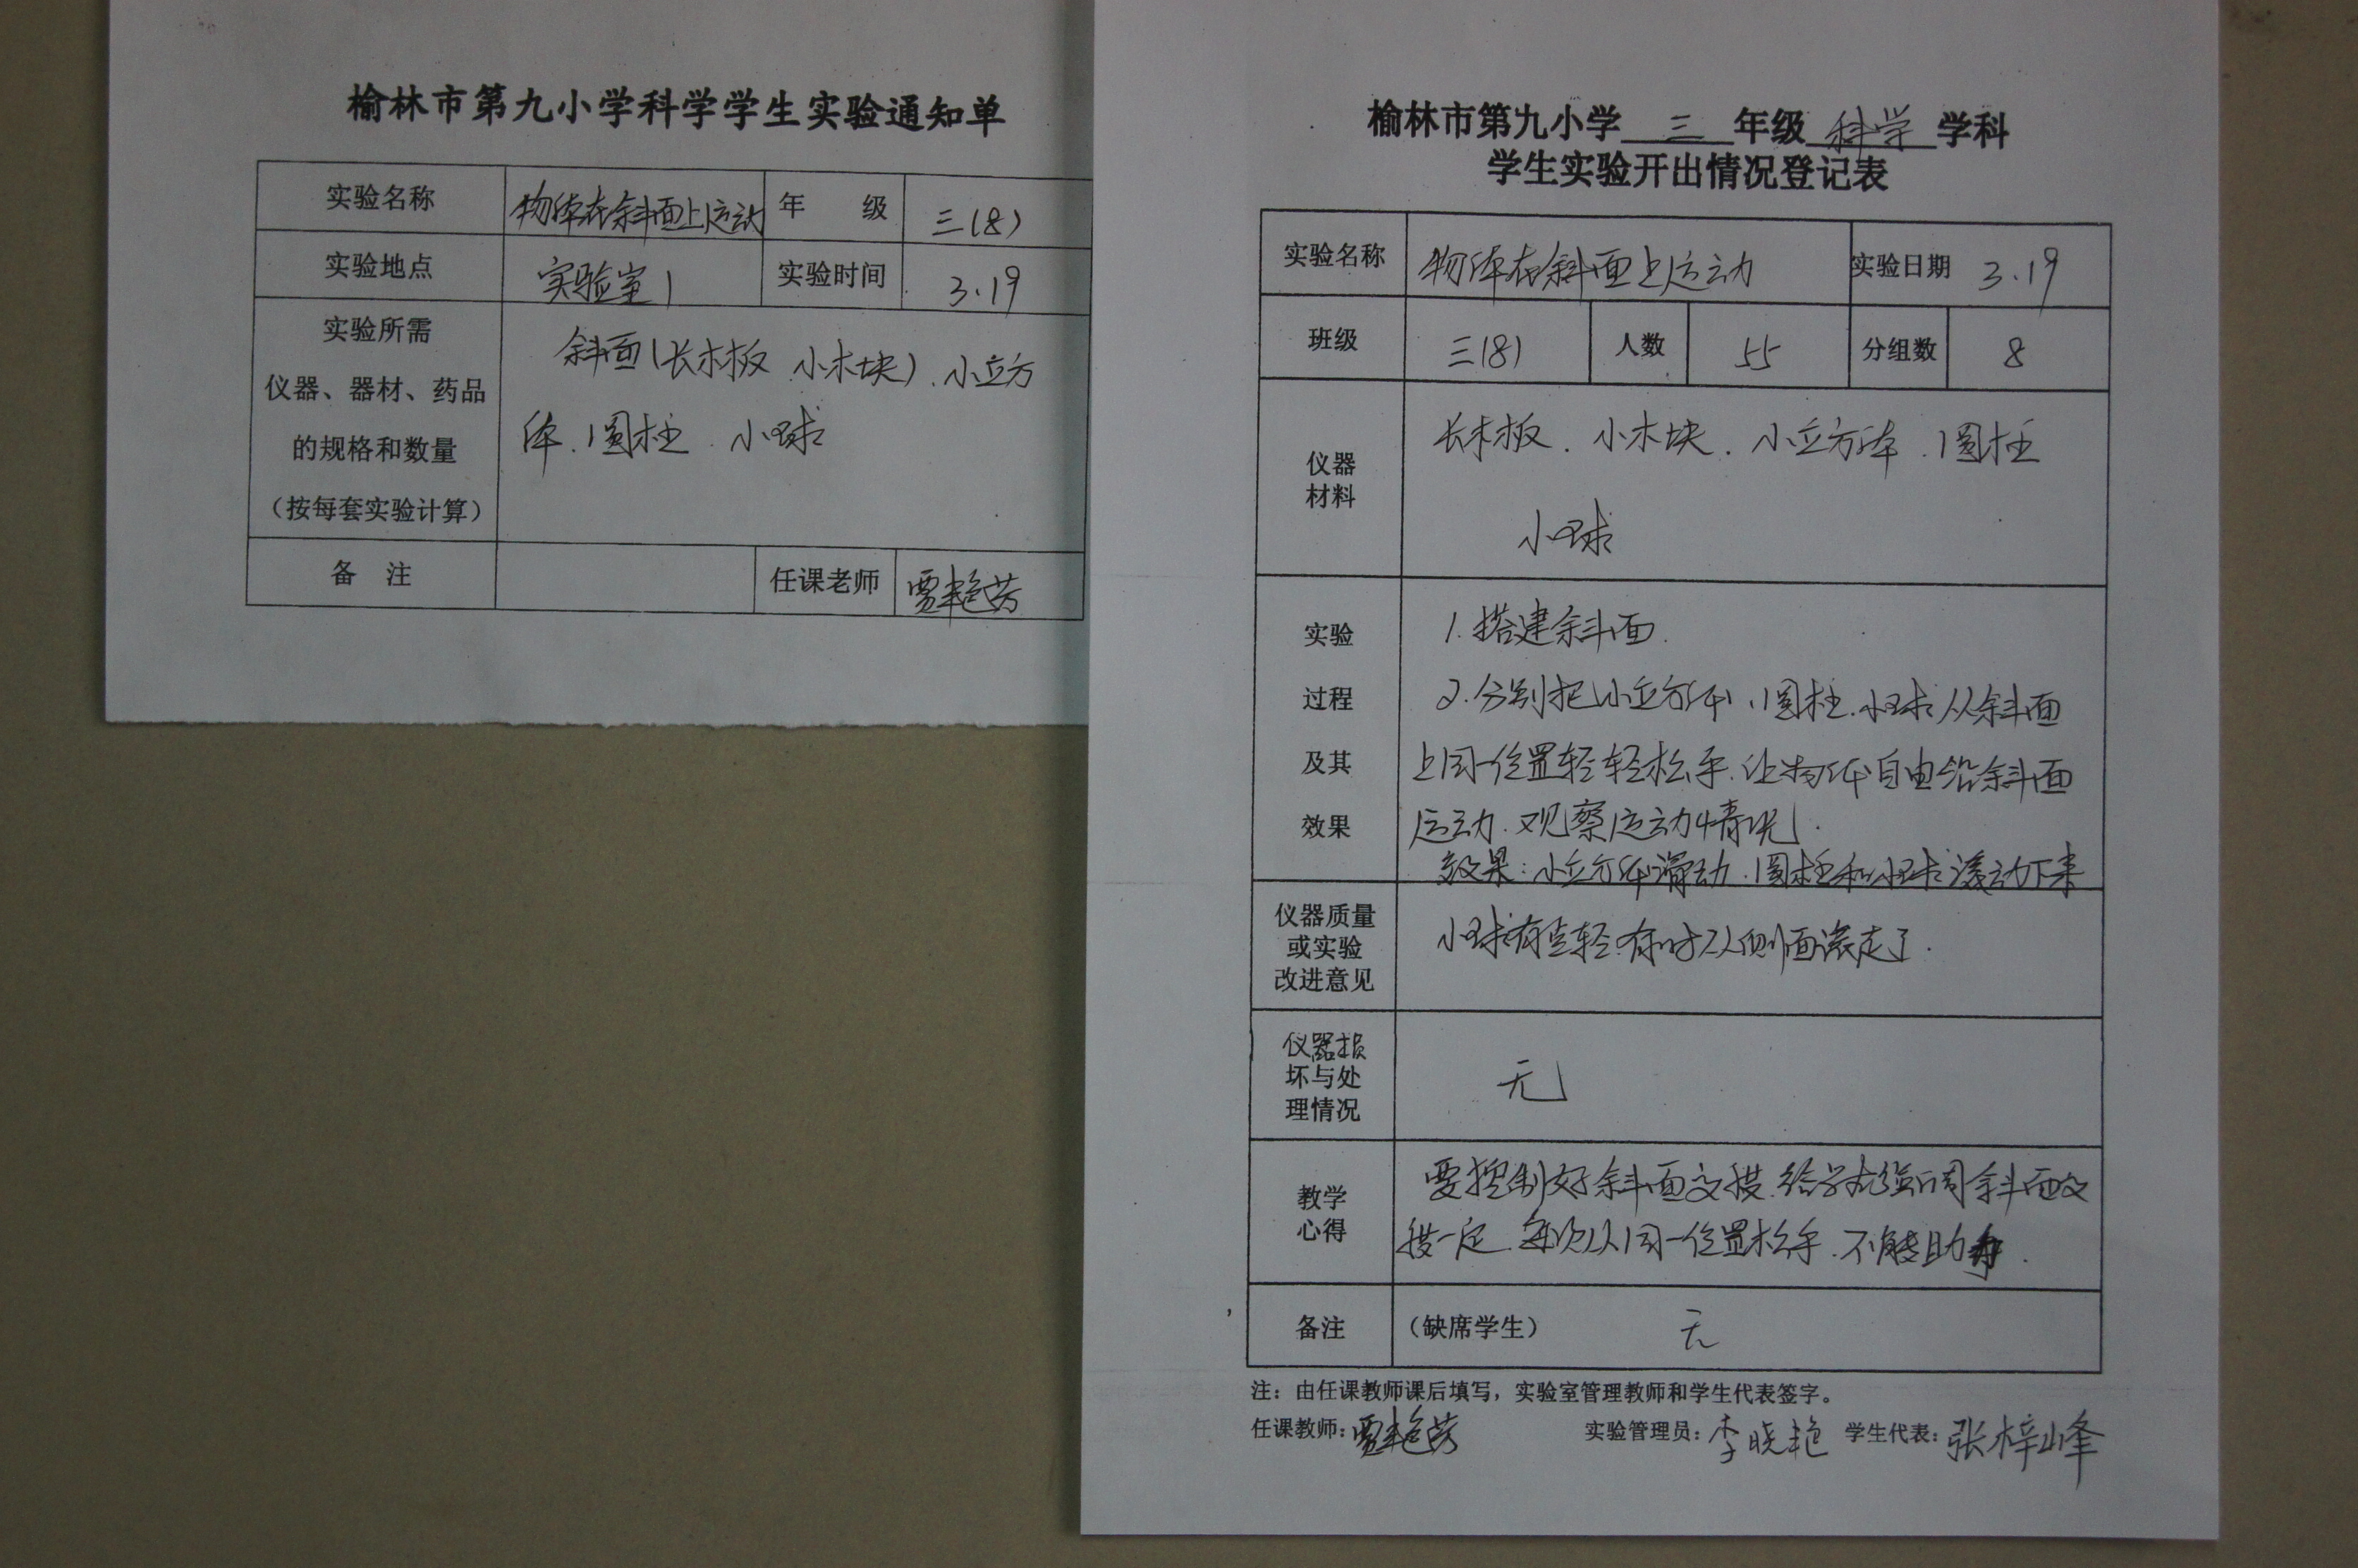 榆林市第九小学科学学生实验通知单
实验名称 物体在斜面上运动 年 级 三(8)
实验地点 实验室1 实验时间 3.19
实验所需
仪器、器材、药品
的规格和数量
(按每套实验计算)
斜面(长木板 小木块)、小立方
体、圆柱、小球
备 注 任课老师 贾艳芳
榆林市第九小学 三 年级 科学 学科
学生实验开出情况登记表
实验名称 物体在斜面上运动 实验日期 3.19
班级 三(8) 人数 55 分组数 8
仪器
材料
长木板、小木块、小立方体、圆柱
小球
实验
过程
及其
效果
1.搭建斜面.
2.分别把小立方体、圆柱、小球从斜面
上同一位置轻轻松手,让物体自由沿斜面
运动,观察运动情况.
效果:小立方体滑动,圆柱和小球滚动下来
仪器质量
或实验
改进意见
小球有点轻,有时从侧面滚走了.
仪器损
坏与处
理情况
无
教学
心得
要控制好斜面 斜面
一定,每次从同一位置松手,不能助力.
备注 (缺席学生) 无
注:由任课教师课后填写,实验室管理教师和学生代表签字。
任课教师:贾艳芳 实验管理员:李晓艳 学生代表:张梓峰